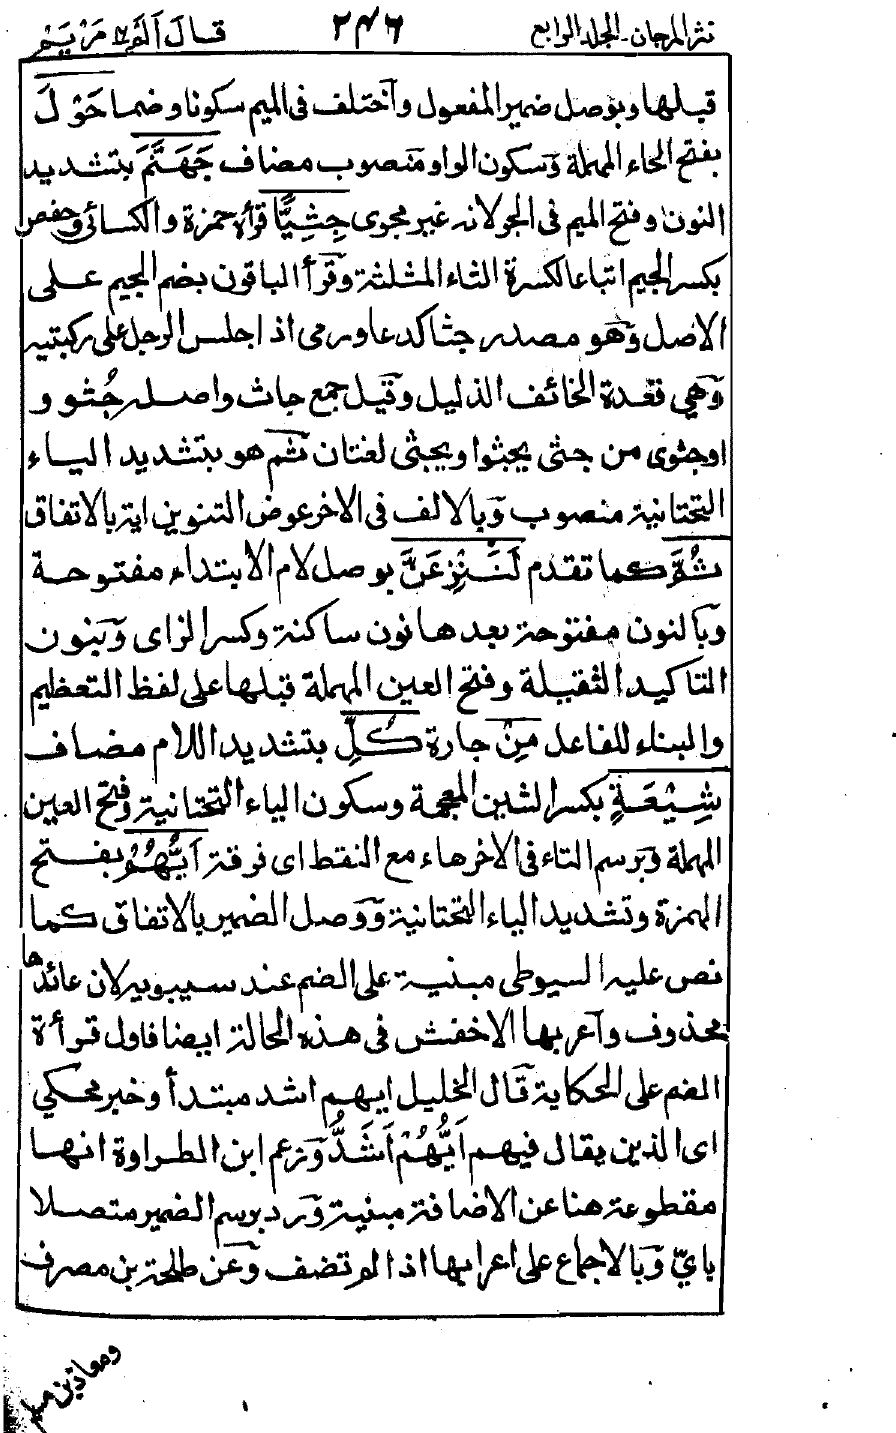 نثر المرجان۔ المجلد الرابع ۲۴۶ قال الم ۱۶ مريم
قبلها وبوصل ضمير المفعول واختلف فى الميم سكونا وضما حَوْلَ
بفتح الحاء المهملة وسكون الواو منصوب مضاف جَهَنَّمَ بتشديد
النون وفتح الميم فى الجر لانه غير مجرى جِثِيًّا قرأه حمزة والكسائى وحفص
بكسر الجيم اتباعا لكسرة الثاء المثلثة وقرأ الباقون بضم الجيم على
الاصل وهو مصدر جثا كدعا ورمى اذا جلس الرجل على ركبتيه
وهي قعدة الخائف الذليل وقيل جمع جاث واصله جُثوو و
اوجثوى من جثى يجثوا ويجثى لغتان ثم هو بتشديد الياء
التحتانية منصوب وبالالف فى الاخر عوض التنوين اية بالاتفاق
ثُمَّ كما تقدم لَنَنْزِعَنَّ بوصل لام الابتداء مفتوحة
وبالنون مفتوحة بعدها نون ساكنة وكسر الزاى وبنون
التاكيد الثقيلة وفتح العين المهملة قبلها على لفظ التعظيم
والبناء للفاعل مِنْ جارة كُلِّ بتشديد اللام مضاف
شِيْعَةٍ بكسر الشين المعجمة وسكون الياء التحتانية وفتح العين
المهملة وبرسم التاء فى الاخر هاء مع النقط اى فرقة اَيُّهُمْ بفتح
الهمزة وتشديد الياء التحتانية ووصل الضمير بالاتفاق كما
نص عليه السيوطى مبنية على الضم عند سيبويه لان عائدها
محذوف واعربها الاخفش فى هذه الحالة ايضا فاول قرأة
الضم على الحكاية قال الخليل ايهم اشد مبتدأ وخبر محكي
اى الذين يقال فيهم اَيُّهُمْ اَشَدُّ وزعم ابن الطراوة انها
مقطوعة هنا عن الاضافة مبنية ورد برسم الضمير متصلا
بايّ وبالاجماع على اعرابها اذا لم تضف وعن طلحة بن مصرف
ومعاذ بن مسلم